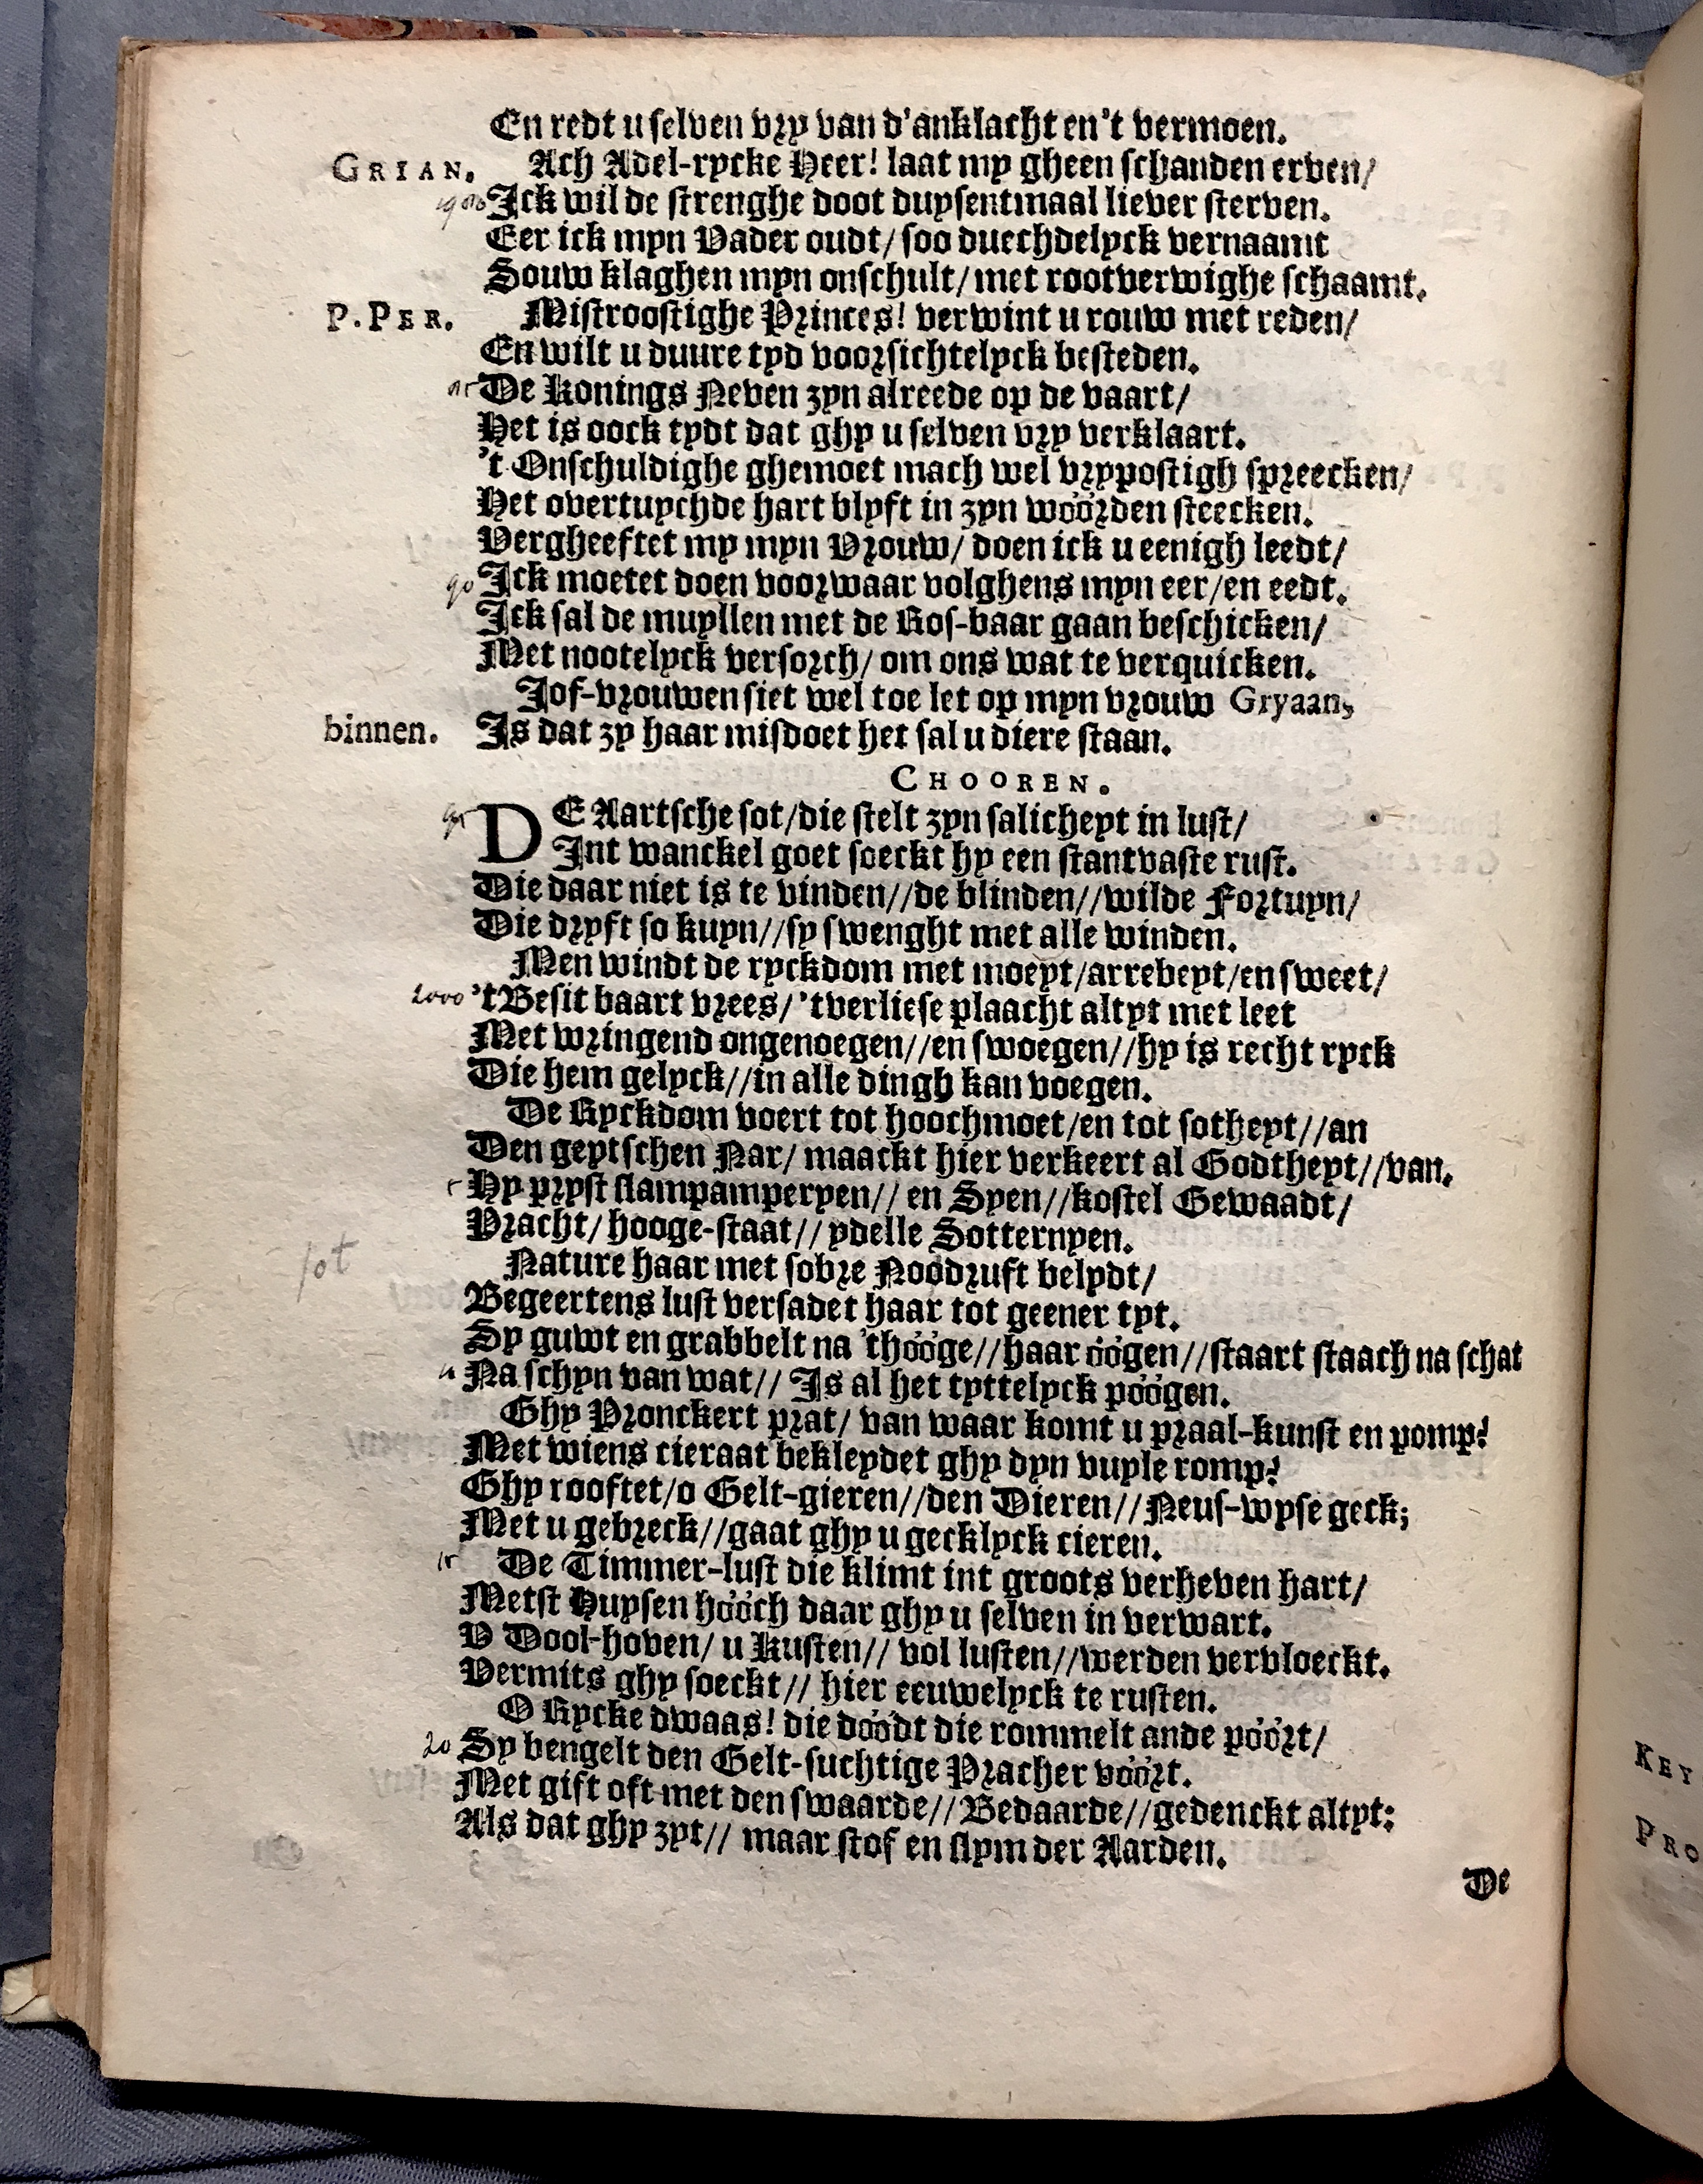 En redt u selven vry van d'anklacht en 't vermoen.
GRIAN. Ach Adel-rycke Heer! laat my gheen schanden erven/
Ick wil de strenghe doot duysentmaal liever sterven.
Eer ick myn Vader oudt/ soo duechdelyck vernaamt
Souw klaghen myn onschult/ met rootverwighe schaamt.
P. PER. Mistroostighe Princes! verwint u rouw met reden/
En wilt u duure tyd voorsichtelyck besteden.
De Konings Neven zyn alreede op de vaart/
Het is oock tydt dat ghy u selven vry verklaart.
't Onschuldighe ghemoet mach wel vrypostigh spreecken/
Het overtuychde hart blyft in zyn wöörden steecken.
Vergheeftet my myn Vrouw/ doen ick u eenigh leedt/
90 Ick moetet doen voorwaar volghens myn eer/en eedt.
Ick sal de muyllen met de Ros-baar gaan beschicken/
Met nootelyck versorch/ om ons wat te verquicken.
Jof-vrouwen siet wel toe let op myn vrouw Gryaan,
binnen. Is dat zy haar misdoet het sal u diere staan.
CHOOREN.
DE Aartsche sot/die stelt zyn salicheyt in lust/
Int wanckel goet soeckt hy een stantvaste rust.
Die daar niet is te vinden//de blinden//wilde Fortuyn/
Die dryft so kuyn//sy swenght met alle winden.
Men windt de ryckdom met moeyt/arrebeyt/en sweet/
2000 't Besit baart vrees/ 'tverliese plaacht altyt met leet
Met wringend ongenoegen//en swoegen//hy is recht ryck
Die hem gelyck//in alle dingh kan voegen.
De Ryckdom voert tot hoochmoet/en tot sotheyt//an
Den geytschen Nar/ maackt hier verkeert al Godtheyt//van.
Hy pryst slampamperyen// en Syen//kostel Gewaadt/
Pracht/ hooge-staat// ydelle Sotternyen.
sot
Nature haar met sobre Noödruft belydt/
Begeertens lust versadet haar tot geener tyt.
Sy guwt en grabbelt na 'thööge//haar öögen//staart staach na schat
Na schyn van wat// Is al het tyttelyck pöögen.
Ghy Pronckert prat/ van waar komt u praal-kunst en pomp?
Met wiens cieraat bekleydet ghy dyn vuyle romp?
Ghy rooftet/o Gelt-gieren//den Dieren//Neus-wyse geck;
Met u gebreck//gaat ghy u gecklyck cieren.
De Timmer-lust die klimt int groots verheven hart/
Metst Huysen hööch daar ghy u selven in verwart.
V Dool-hoven/ u Kusten// vol lusten//werden vervloeckt.
Vermits ghy soeckt// hier eeuwelyck te rusten.
O Rycke dwaas! die döödt die rommelt ande pöört/
20 Sy bengelt den Gelt-suchtige Pracher vöört.
Met gift oft met den swaarde//Bedaarde//gedenckt altyt:
Als dat ghy zyt// maar stof en slym der Aarden.
De
KEY
PRO